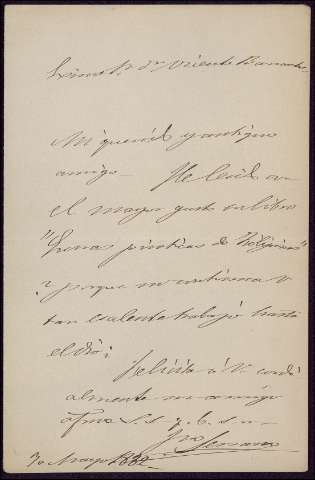 Exmo Sr Dn Vicente Barrantes
Mi querido y antiguo
amigo. He leido con
el mayor gusto su libro
"Guerras piráticas de Filipinas"
? porque no continua V
tan exelente trabajo hasta
el dia?
Felicita á V. cordi
almente su amigo
afmo S. S. q. b. s. m.
Serrano
30 Mayo 1882